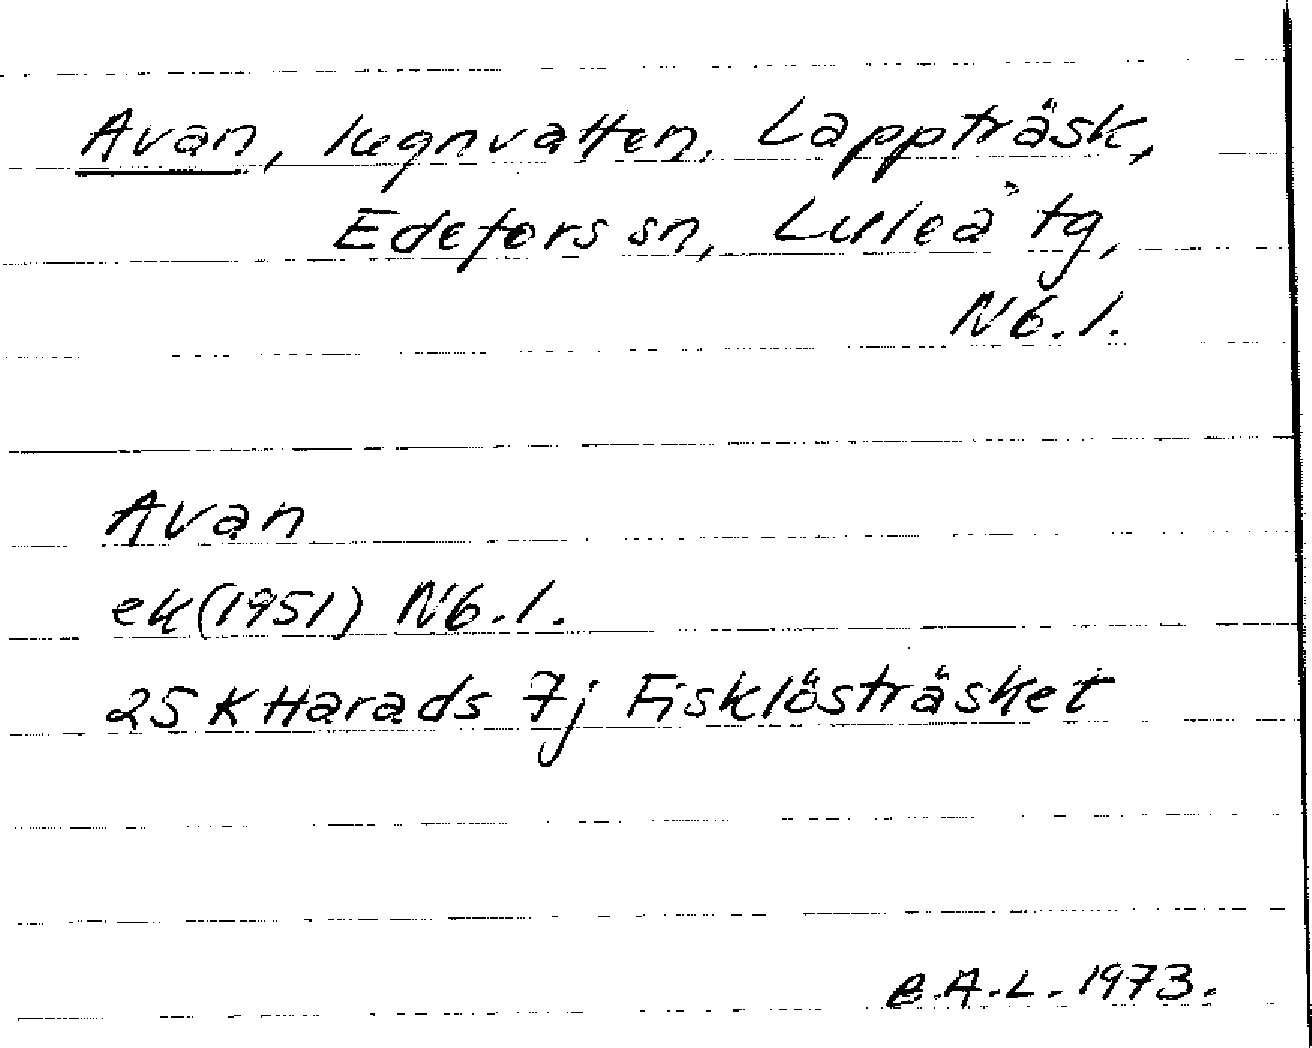 Avan, lugnvatten, Lappträsk,
Edefors sn, Luleå tg,
Nb. l.
Avan
ek (1951) Nb. l.
25 K Harads 7j Fisklösträsket
B.A.L. 1973.